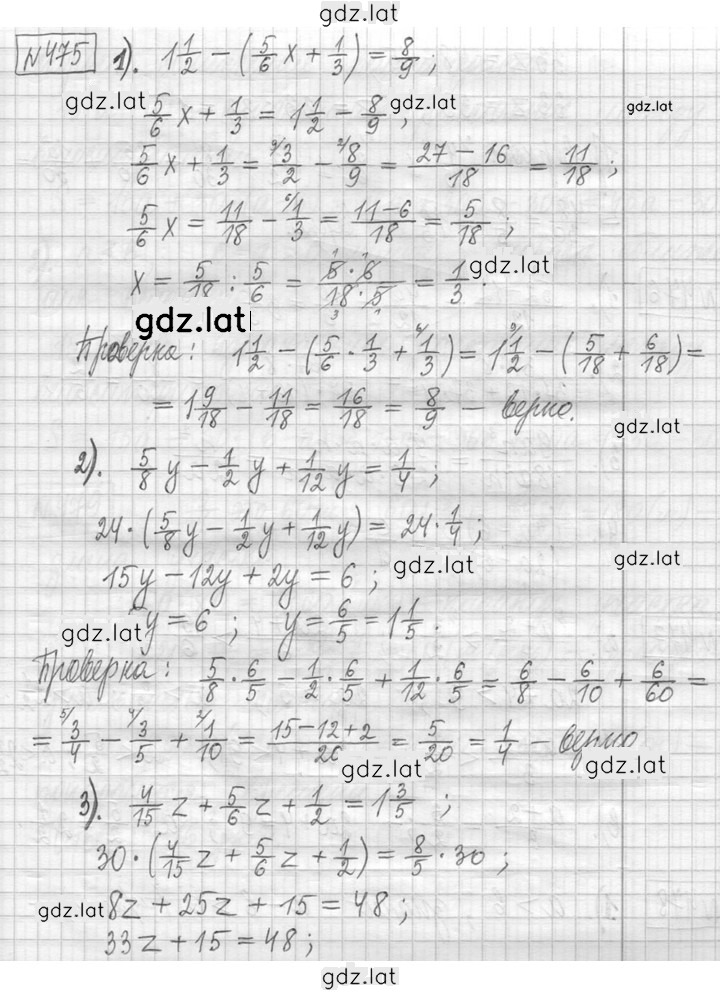 gdz.lat
№475 1). 1 1/2 − (5/6 x + 1/3) = 8/9 ;
gdz.lat gdz.lat gdz.lat
5/6 x + 1/3 = 1 1/2 − 8/9 ;
5/6 x + 1/3 = 9/3/2 − 2/8/9 = (27 − 16)/18 = 11/18 ;
5/6 x = 11/18 − 6/1/3 = (11−6)/18 = 5/18 ;
x = 5/18 : 5/6 = (5·6)/(18·5) = 1/3 . gdz.lat
gdz.lat
Проверка: 1 1/2 − (5/6 · 1/3 + 6/1/3) = 1 9/1/2 − (5/18 + 6/18) =
= 1 9/18 − 11/18 = 16/18 = 8/9 − верно.
gdz.lat
2). 5/8 y − 1/2 y + 1/12 y = 1/4 ;
24 · (5/8 y − 1/2 y + 1/12 y) = 24 · 1/4 ;
gdz.lat gdz.lat
15y − 12y + 2y = 6 ;
gdz.lat y = 6 ; y = 6/5 = 1 1/5 .
Проверка: 5/8 · 6/5 − 1/2 · 6/5 + 1/12 · 6/5 = 6/8 − 6/10 + 6/60 =
= 5/3/4 − 4/3/5 + 2/1/10 = (15−12+2)/20 = 5/20 = 1/4 − верно
gdz.lat gdz.lat
3). 4/15 z + 5/6 z + 1/2 = 1 3/5 ;
30 · (4/15 z + 5/6 z + 1/2) = 8/5 · 30 ;
gdz.lat 8z + 25z + 15 = 48 ;
33z + 15 = 48 ;
gdz.lat